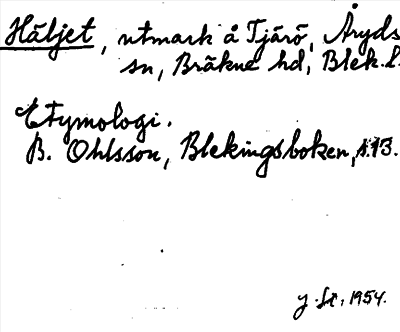 Häljet, utmark å Tjärö, Åryds
sn, Bräkne hd, Blek. l.
Etymologi.
B. Ohlsson, Blekingsboken, s. 13.
y. St, 1954.